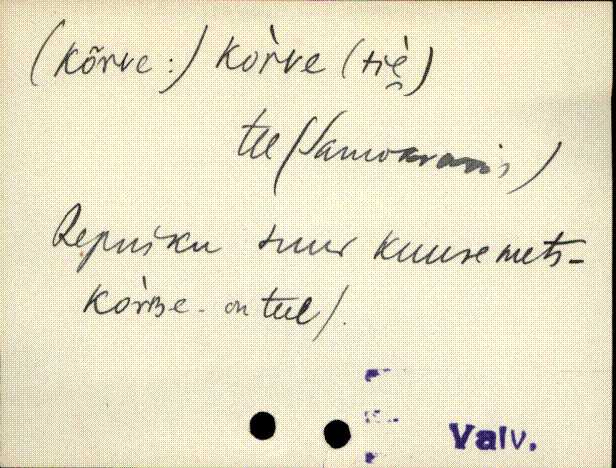 (kõrve:) kòrve (tiè̮)
tee (Samokrassis)
Repniku suur kuusemets-
kòrve - on teel/.
Valv.